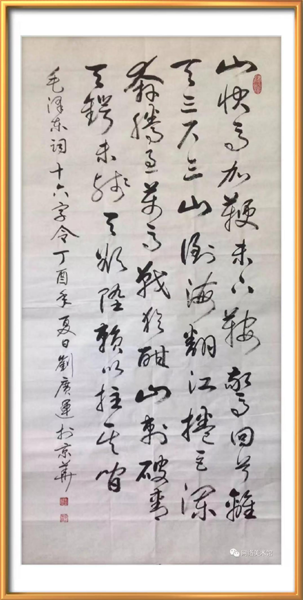 山快马加鞭未下鞍驚回首離
天三尺三山倒海翻江捲巨瀾
奔騰急萬馬戰猶酣山刺破青
天鍔未殘天欲墮賴以拄其間
毛泽东词十六字令丁酉年夏日劉廣運於京華